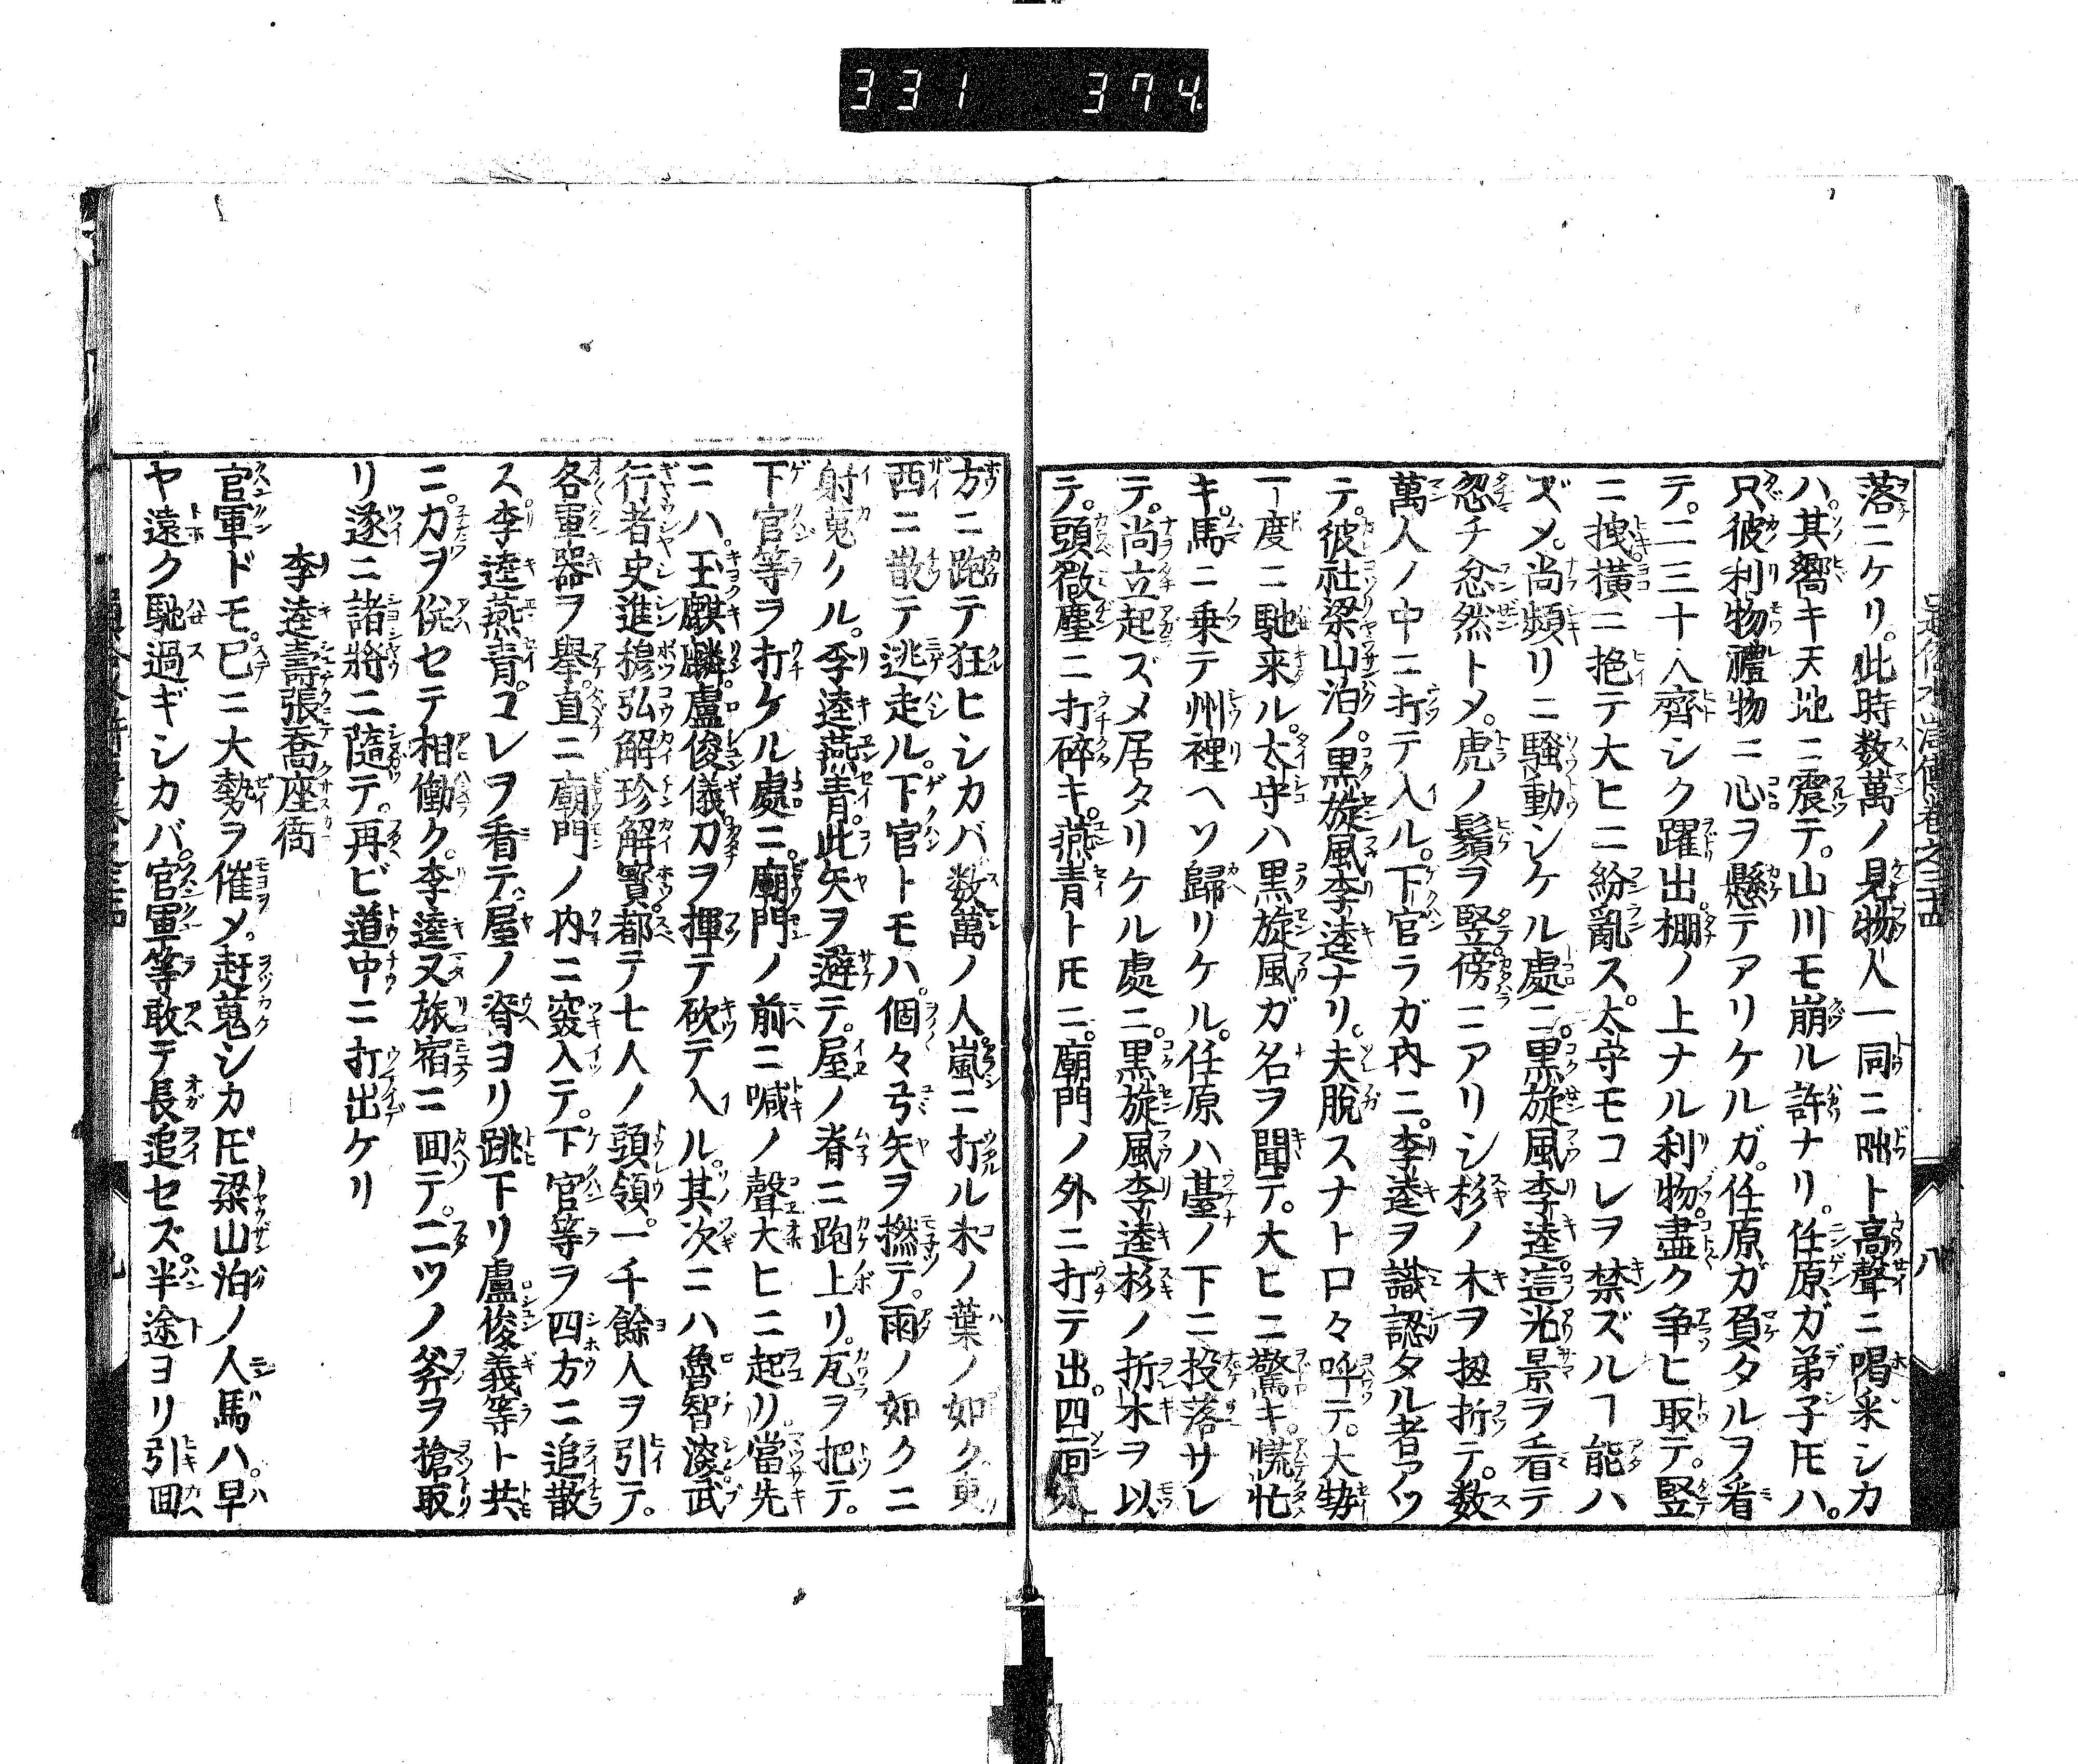 331 374
落ニケリ。此時数萬ノ見物人一同ニ咄ト高聲ニ喝采シカ
ハ。其響キ天地ニ震テ。山川モ崩ル許ナリ。任原ガ弟子𪜈ハ。
只彼利物禮物ニ心ヲ懸テアリケルガ。任原ガ負タルヲ看
テ。二三十人齊シク躍出。棚ノ上ナル利物。盡ク争ヒ取テ。竪
ニ拽横ニ扡テ大ヒニ紛亂ス。太守モコレヲ禁ズルヿ能ハ
ズメ。尚頻リニ騒動シケル處ニ。黒旋風李逵。這光景ヲ看テ
忽チ忿然トメ。虎ノ鬚ヲ竪。傍ニアリシ杉ノ木ヲ扨折テ。数
萬人ノ中ニ打テ入ル。下官ラガ内ニ。李逵ヲ識認タル者アツ
テ。彼社梁山泊ノ。黒旋風李逵ナリ。夫脱スナト口々呼テ。大勢
一度ニ馳来ル。太守ハ黒旋風ガ名ヲ聞テ。大ヒニ驚キ。慌忙
キ。馬ニ乗テ州裡ヘソ歸リケル。任原ハ䑓ノ下ニ投落サレ
テ。尚立起ズメ居タリケル處ニ。黒旋風李逵杉ノ折木ヲ以
テ。頭微塵ニ打碎キ。燕青ト𪜈ニ。廟門ノ外ニ打テ出。四面
八
方ニ跑テ狂ヒシカバ数萬ノ人嵐ニ打ル木ノ葉ノ如ク東
西ニ散テ逃走ル。下官トモハ。個々弓矢ヲ撚テ。雨ノ如クニ
射蒐ケル。李逵燕青。此矢ヲ避テ。屋ノ脊ニ跑上リ。瓦ヲ把テ。
下官等ヲ打ケル處ニ。廟門ノ前ニ喊ノ聲大ヒニ起リ。當先
ニハ。玉麒麟盧俊儀。刀ヲ揮テ砍テ入ル。其次ニハ魯智深武
行者史進穆弘解珍解寳。都テ七人ノ頭領。一千餘人ヲ引テ。
各軍器ヲ擧。直ニ廟門ノ内ニ窔入テ。下官等ヲ四方ニ追散
ス李逵燕青。コレヲ看テ。屋ノ脊ヨリ跳下リ盧俊義等ト共
ニ。力ヲ倂セテ相働ク。李逵又旅宿ニ回テ。二ツノ斧ヲ搶取
リ遂ニ諸將ニ隨テ。再ビ道中ニ打出ケリ
李逵壽張喬座衙
官軍ドモ。已ニ大勢ヲ催メ。赶蒐シカ𪜈梁山泊ノ人馬ハ。早
ヤ遠ク馳過ギシカバ。官軍等敢テ長追セズ。半途ヨリ引回
九